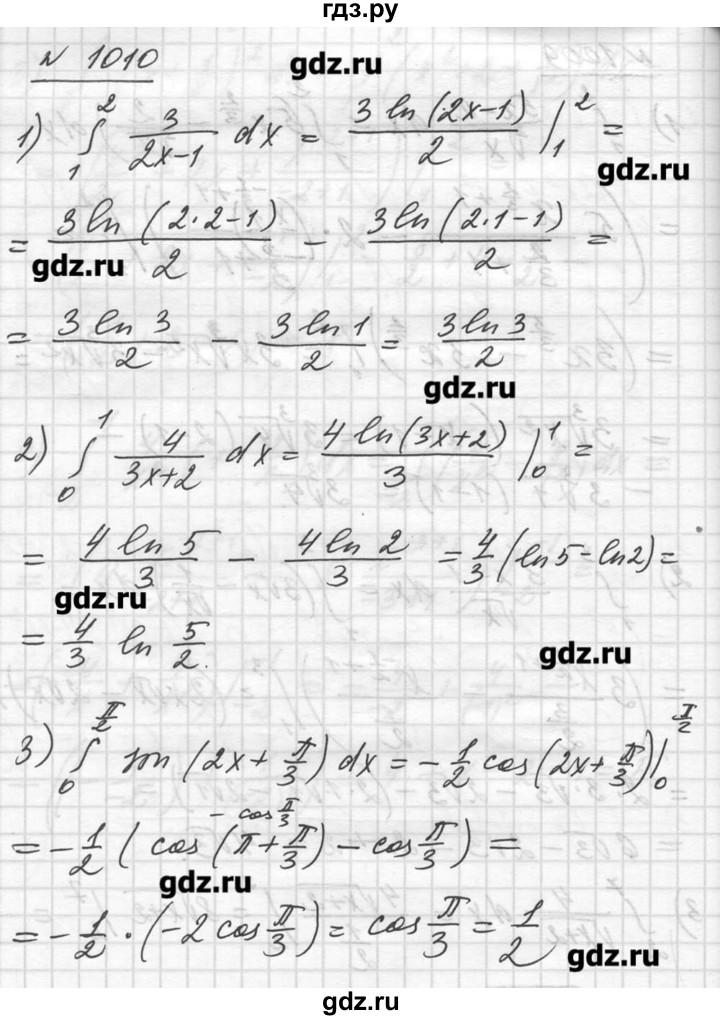 гдз.ру
№ 1010
gdz.ru
1) ∫₁² 3/(2x-1) dx = 3 ln (2x-1)/2 |₁² =
gdz.ru
= 3 ln (2·2-1)/2 - 3 ln (2·1-1)/2 =
gdz.ru
= 3 ln 3/2 - 3 ln 1/2 = 3 ln 3/2
gdz.ru
2) ∫₀¹ 4/(3x+2) dx = 4 ln (3x+2)/3 |₀¹ =
= 4 ln 5/3 - 4 ln 2/3 = 4/3 (ln 5 - ln 2) =
gdz.ru
= 4/3 ln 5/2.
gdz.ru
3) ∫₀^(π/2) sin (2x + π/3) dx = - 1/2 cos (2x + π/3) |₀^(π/2)
- cos π/3
= - 1/2 ( cos (π + π/3) - cos π/3 ) =
gdz.ru
= - 1/2 · (-2 cos π/3) = cos π/3 = 1/2
gdz.ru
gdz.ru